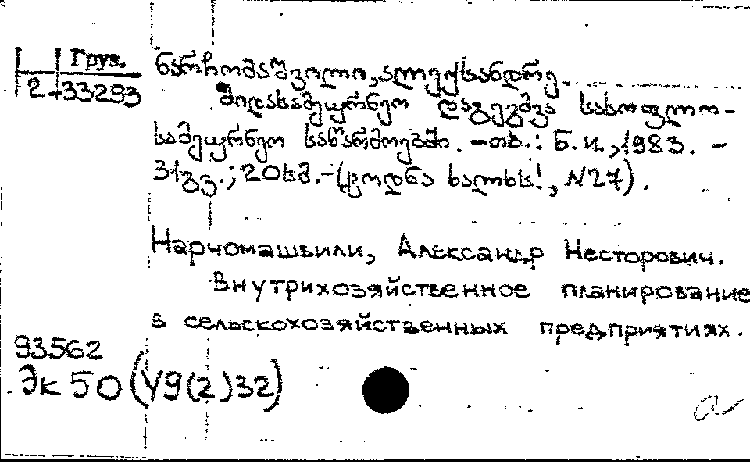 Груз.
2-33293
ნარჩომაშვილი, ალექსანდრე.
შიდასამეურნეო დაგეგმვა სასოფლო-
სამეურნეო საწარმოებში. – თბ.: Б. и., 1983. –
31გვ.; 20სმ. – (ცოდნა ხალხს!, N27).
Нарчомашвили, Александр Несторович.
Внутрихозяйственное планирование
в сельскохозяйственных предприятиях.
93562
Эк 50 (У9(2)32)
а